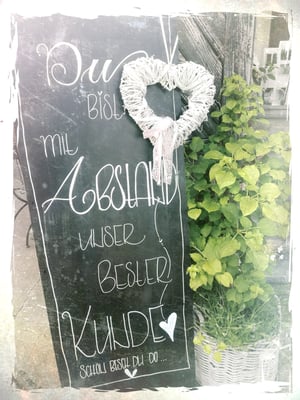 Du
BIST
MIT
ABSTAND
UNSER
BESTER
KUNDE!
SCHÖN BIST DU DA ...